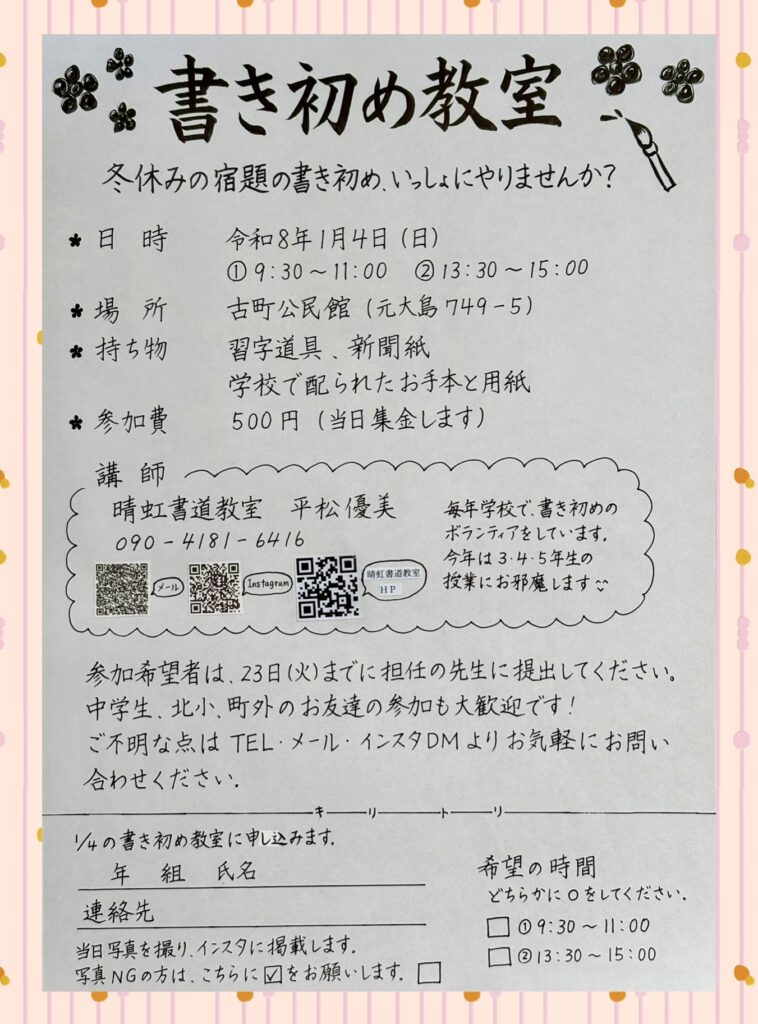 書き初め教室
冬休みの宿題の書き初め、いっしょにやりませんか？
* 日 時 令和8年1月4日（日）
① 9:30～11:00 ② 13:30～15:00
* 場 所 古町公民館（元大島749-5）
* 持ち物 習字道具、新聞紙
学校で配られたお手本と用紙
* 参加費 500円（当日集金します）
講 師
晴虹書道教室 平松優美
090-4181-6416
メール
Instagram
晴虹書道教室
HP
毎年学校で、書き初めの
ボランティアをしています。
今年は3・4・5年生の
授業にお邪魔します
参加希望者は、23日(火)までに担任の先生に提出してください。
中学生、北小、町外のお友達の参加も大歓迎です！
ご不明な点は TEL・メール・インスタDMよりお気軽にお問い
合わせください。
キリトリ
1/4の書き初め教室に申し込みます。
年 組 氏名
連絡先
当日写真を撮り、インスタに掲載します。
写真NGの方は、こちらに☑をお願いします。□
希望の時間
どちらかに○をしてください。
□ ① 9:30～11:00
□ ② 13:30～15:00